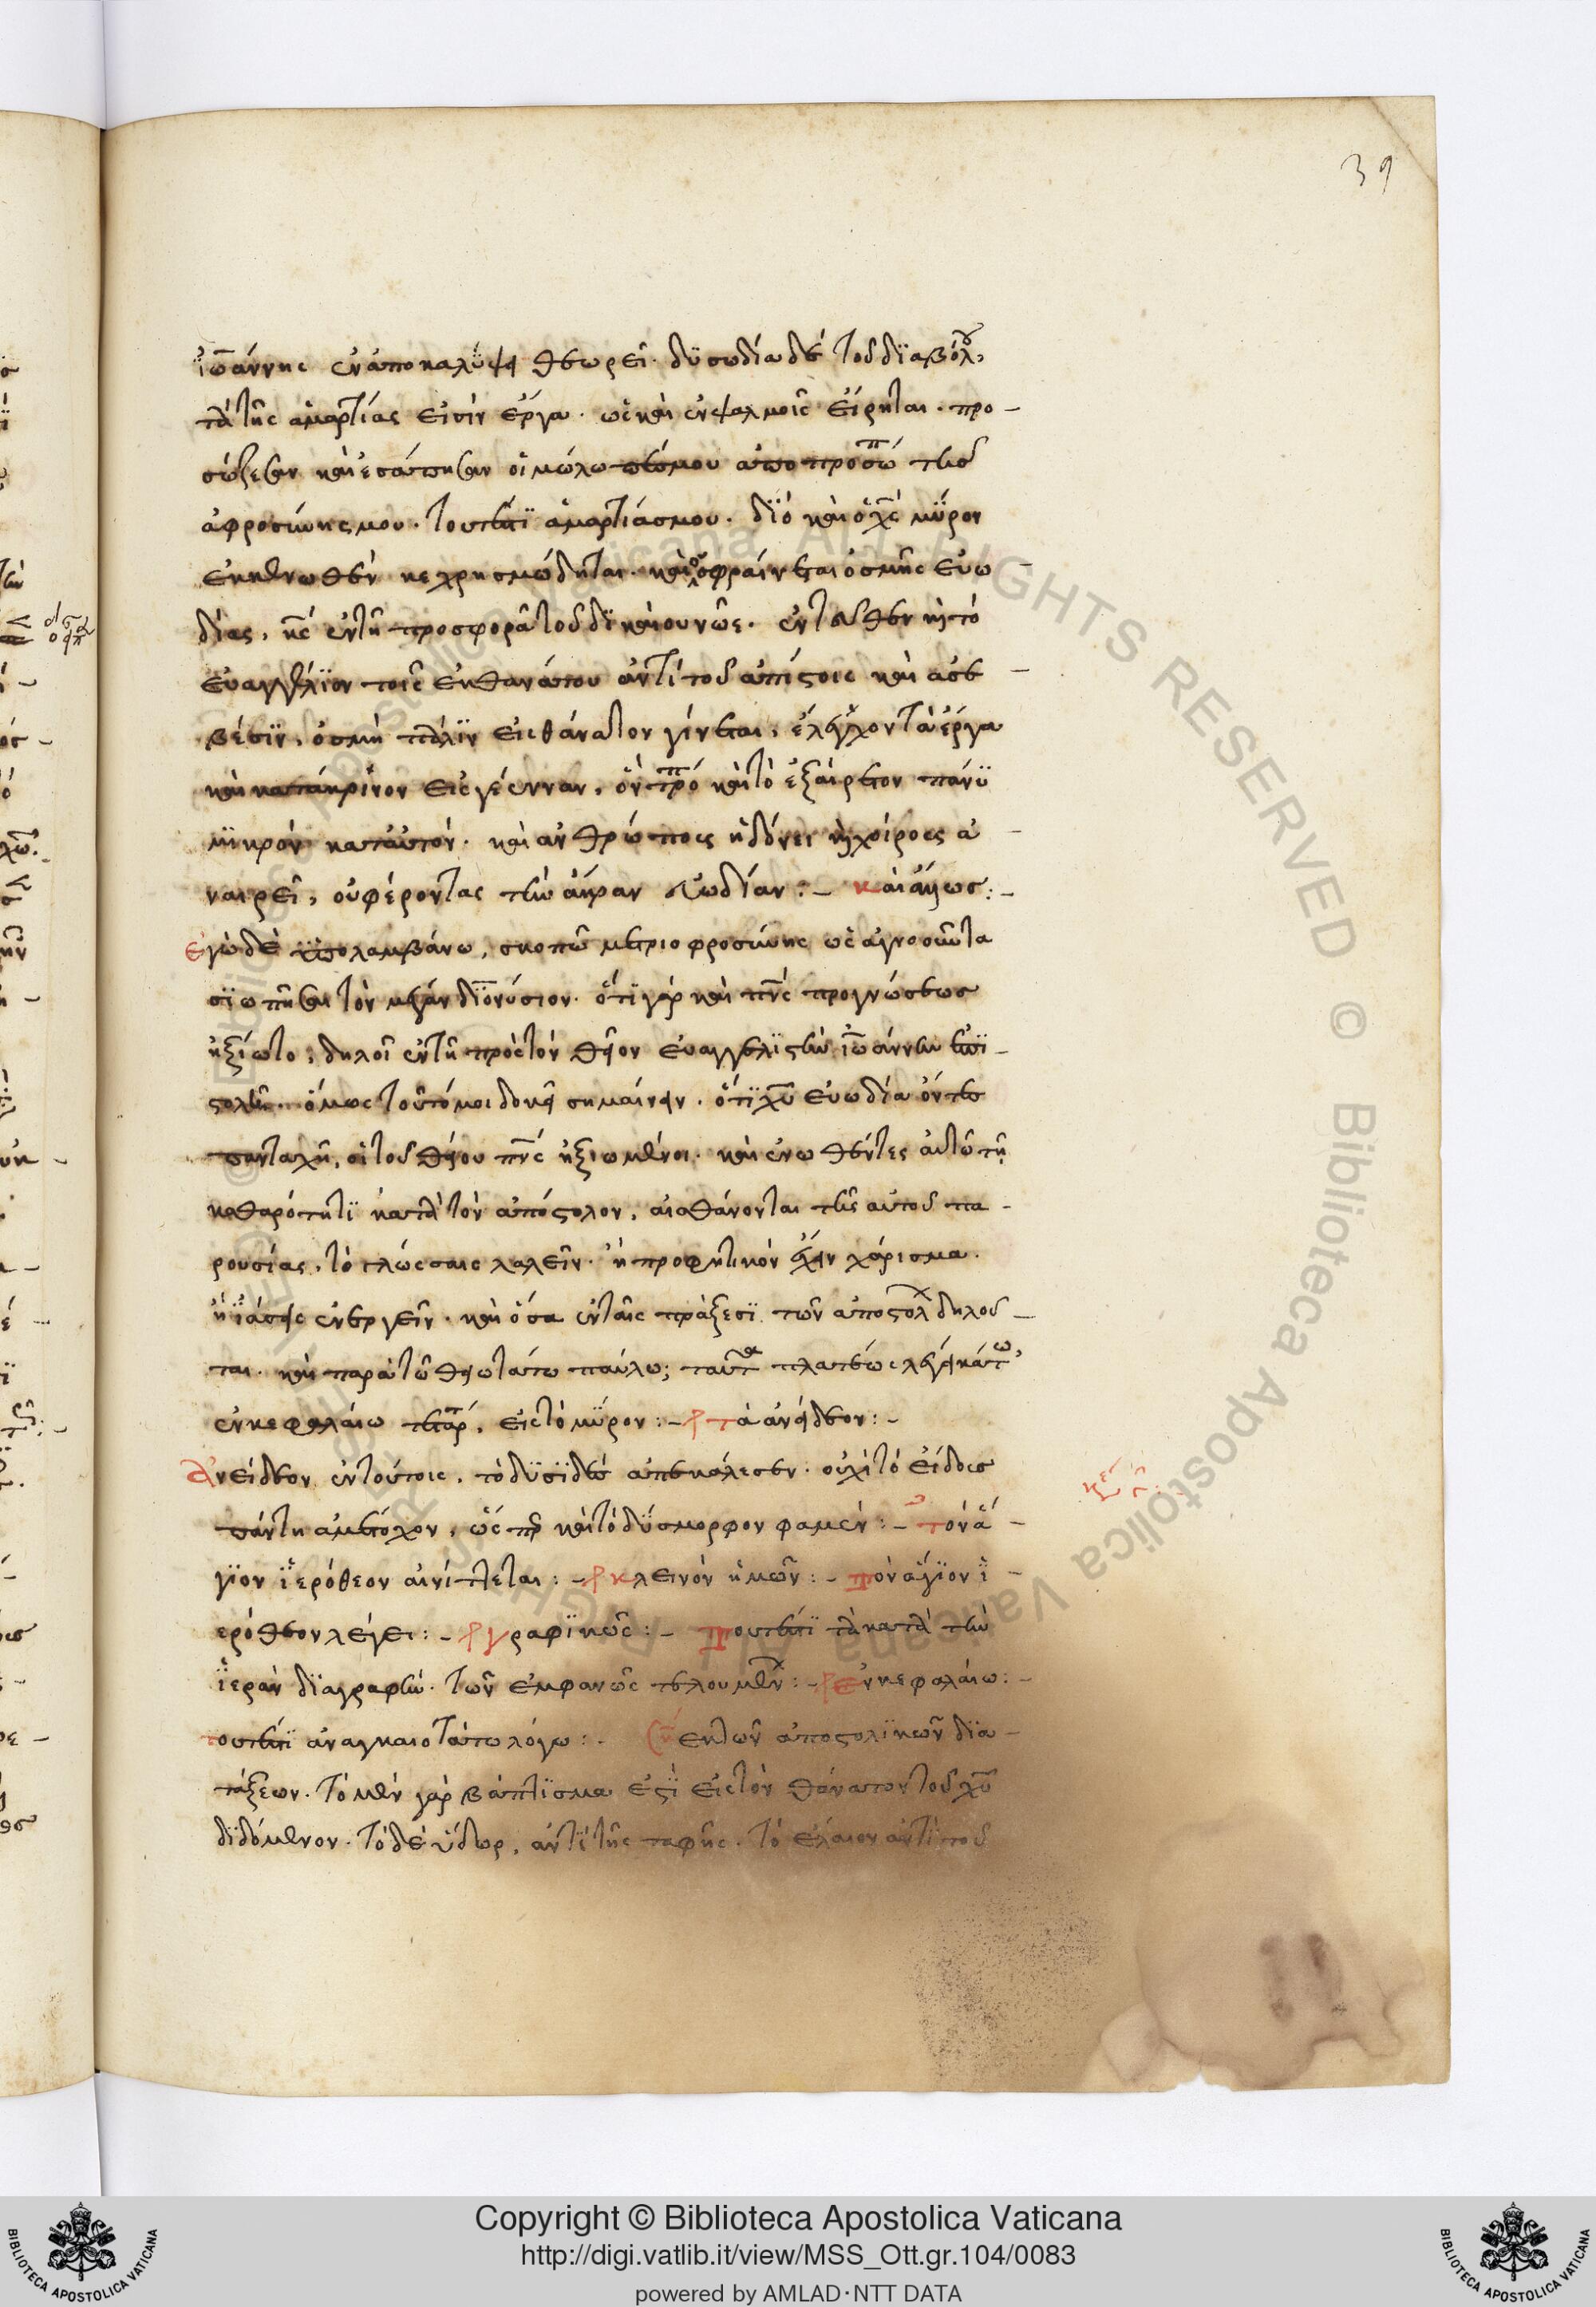 39
ἰωάννης ἐν ἀποκαλύψει θεωρεῖ. δυσωδία δὲ τοῦ διαβόλου,
τὰ τῆς ἁμαρτίας εἰσὶν ἔργα. ὡς καὶ ἐν ψαλμοῖς εἴρηται. προ-
σώζεσαν καὶ ἐσάπησαν οἱ μώλωπές μου ἀπὸ προσώπου τῆς
ἀφροσύνης μου. τουτέστι ἁμαρτίας μου. διὸ καὶ ὁ χς μύρον
ἐκκενωθὲν κεχρησμώδηται. καὶ ὀσφραίνεται ὀσμῆς εὐω-
δίας, ἐν τῇ προσφορᾷ τοῦ δικαίου νῶε. ἐντεῦθεν καὶ τὸ
εὐαγγέλιον τοῖς ἐκ θανάτου ἀντὶ τοῦ ἀπίστοις καὶ ἀσε-
βέσιν, ὀσμὴ πάλιν εἰς θάνατον γίνεται, ἐλέγχον τὰ ἔργα
καὶ κατάκρινον εἰς γέενναν, ὃν τρόπον καὶ τὸ ἐξαίρετον πάνυ
μικρὸν κατ' αὐτὸν. καὶ ἀνθρώπους ἡδύνει καὶ χοίρους ἀ-
ναιρεῖ, οὐ φέροντας τὴν ἄκραν εὐωδίαν:- καὶ ἄλλως:-
ἐγὼ δὲ ὑπολαμβάνω, σκοπῷ μετριοφροσύνης ὡς ἀγνοοῦντα
σιωπῆσαι τὸν μέγαν διονύσιον. ὅτι γὰρ καὶ πνς προγνώσεως
ἠξίωτο, δηλοῖ ἐν τῇ πρὸς τὸν θεῖον εὐαγγελιστὴν ἰωάννην ἐπι-
στολῇ. ὅμως τοῦτό μοι δοκεῖ σημαίνειν. ὅτι χυ εὐωδία ὄντες
πανταχῆ, οἱ τοῦ θείου πνς ἠξιωμένοι. καὶ ἑνωθέντες αὐτῷ τῇ
καθαρότητι κατὰ τὸν ἀπόστολον, αἰσθάνονται τῆς αὐτοῦ πα-
ρουσίας, τὸ γλώσσαις λαλεῖν. ἢ προφητικὸν ἔχειν χάρισμα.
ἢ ἰάσεις ἐνεργεῖν. καὶ ὅσα ἐν ταῖς πράξεσι τῶν ἀποστόλων δηλοῦ-
ται. καὶ παρὰ τῷ θειωτάτῳ παύλῳ; ταῦτα πλατέως λέγει κάτω,
ἐν κεφαλαίῳ τετάρτῳ, εἰς τὸ μύρον:- τὰ ἀνείδεον:-
ἀνείδεον ἐν τούτοις, τὸ δυσειδὲς ἀπεκάλεσεν. οὐχὶ τὸ εἴδους
πάντη ἀμέτοχον, ὥσπερ καὶ τὸ δύσμορφον φαμὲν:- τὸν ἅ-
γιον ἱερόθεον αἰνίττεται:- κλεινὸν ἡμῶν:- τὸν ἅγιον ἱ-
ερόθεον λέγει:- γραφικῶς:- τουτέστι τὰ κατὰ τὴν
ἱερὰν διαγραφὴν. τῶν ἐμφανῶς τελουμένων:- ἐν κεφαλαίω:-
τουτέστι ἀναγκαιοτάτω λόγω:- ἐκ τῶν ἀποστολικῶν δια-
τάξεων. τὸ μὲν γὰρ βάπτισμα ἐστὶ εἰς τὸν θάνατον τοῦ χυ
διδόμενον. τὸ δὲ ὕδωρ, ἀντὶ τῆς ταφῆς. τὸ ἔλαιον ἀντὶ τοῦ
Copyright © Biblioteca Apostolica Vaticana
http://digi.vatlib.it/view/MSS_Ott.gr.104/0083
powered by AMLAD·NTT DATA